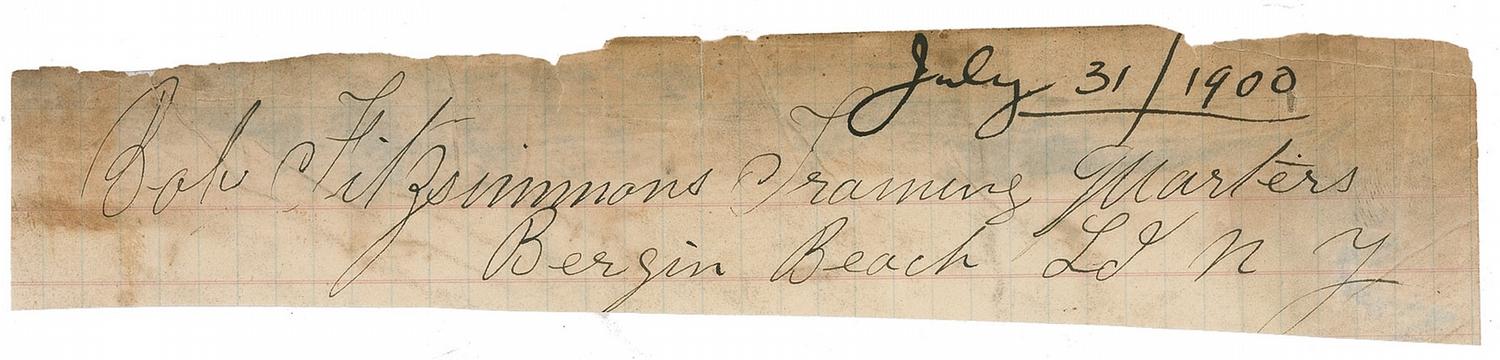 July 31/1900
Bob Fitzsimmons Training Quarters
Bergin Beach LI N Y